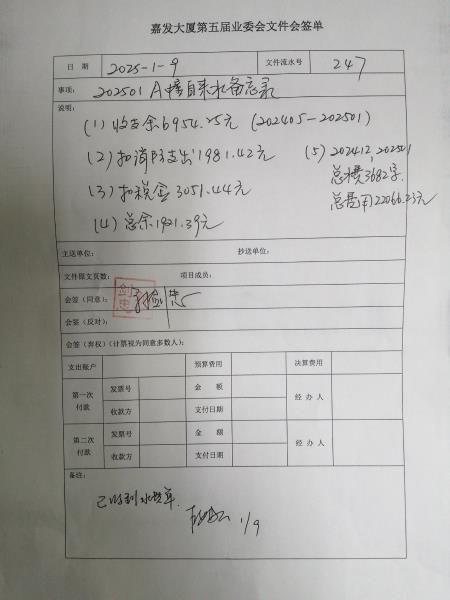 嘉发大厦第五届业委会文件会签单
日 期 2025-1-9 文件流水号 247
事项: 202501 A幢自来水备忘录
说明:
(1) 收支余6954.25元 (202405-202501)
(2) 扣消防支出1981.42元 (5) 202412, 202501
(3) 扣税金3051.44元 总水费3682字.
(4) 总余1921.39元 总费用22066.23元
主送单位: 抄送单位:
文件原文页数: 项目成员:
会签(同意):
会签(反对):
会签(弃权)(计票视为同意多数人):
支出账户 预算费用 决算费用
第一次付款 发票号 金 额 经 办 人
收款方 支付日期
第二次付款 发票号 金 额 经 办 人
收款方 支付日期
备注:
已收到水费单.
1/9